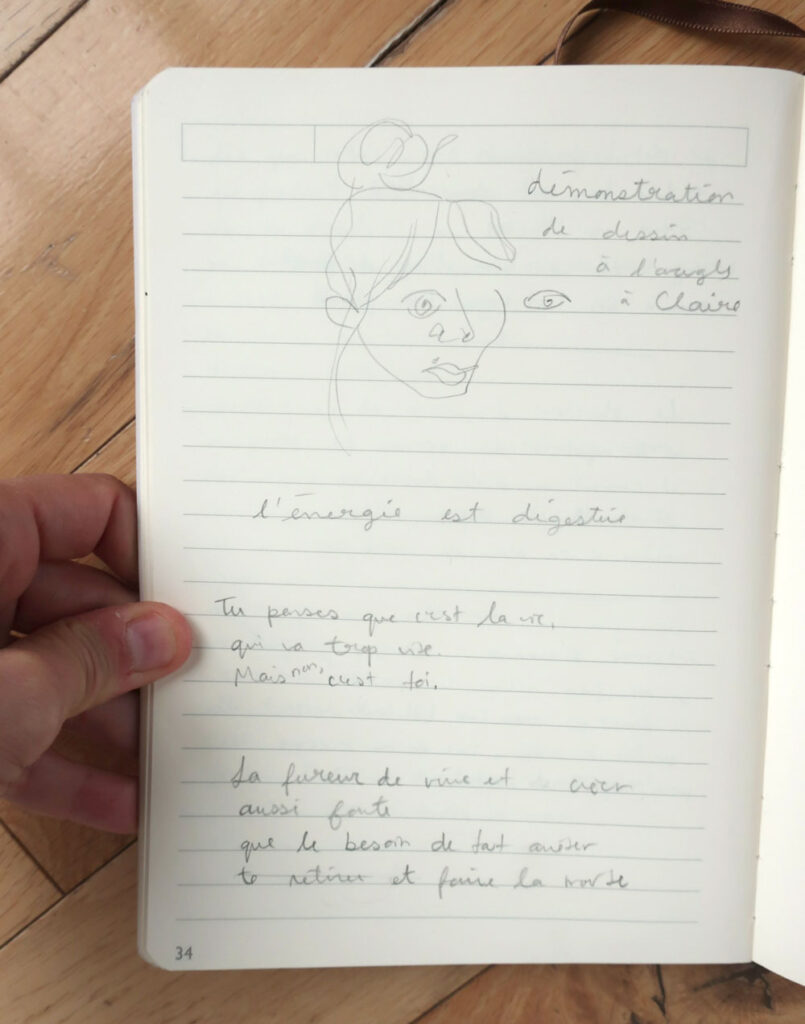 démonstration
de dessin
à l'aveugle
à Claire
l'énergie est digestive
Tu penses que c'est la vie,
qui va trop vite.
Mais non, c'est toi.
La fureur de vivre et créer
aussi forte
que le besoin de tout arrêter
te retirer et faire la morte
34